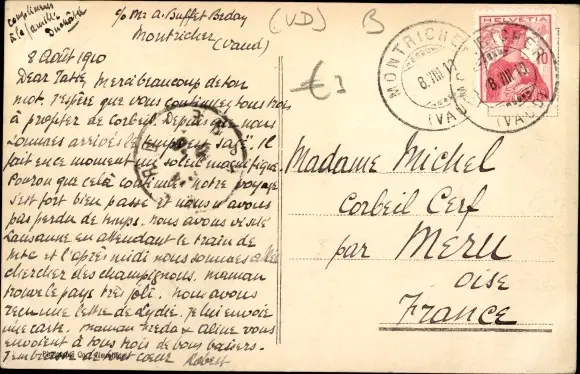 compliments
à la famille
c/o Mr A. Buffet Beday
Montricher (Vaud)
(VD)
B
8 Août 1910
Dear Tatie, Merci beaucoup de ton
mot. J'espère que vous continuez tous trois
à profiter de Corbeil. Depuis que nous
sommes arrivés le temps est sage. Il
fait en ce moment un soleil magnifique
Pourvu que celà continue. notre voyage
s'est fort bien passé et nous n'avons
pas perdu de temps. nous avons visité
Lausanne en attendant le train de
et l'après midi nous sommes allés
chercher des champignons. maman
trouve le pays très joli. nous avons
reçu une lettre de Lydie. Je lui envoie
une carte. maman Freda & Aline vous
envoient à tous trois de bons baisers.
Je t'embrasse de tout cœur Robert
HELVETIA
10
MONTRICHER
8.VIII.10
(VAUD)
MONTRICHER
8.VIII.10
(VAUD)
Madame Michel
Corbeil Cerf
par MERU
OISE
France